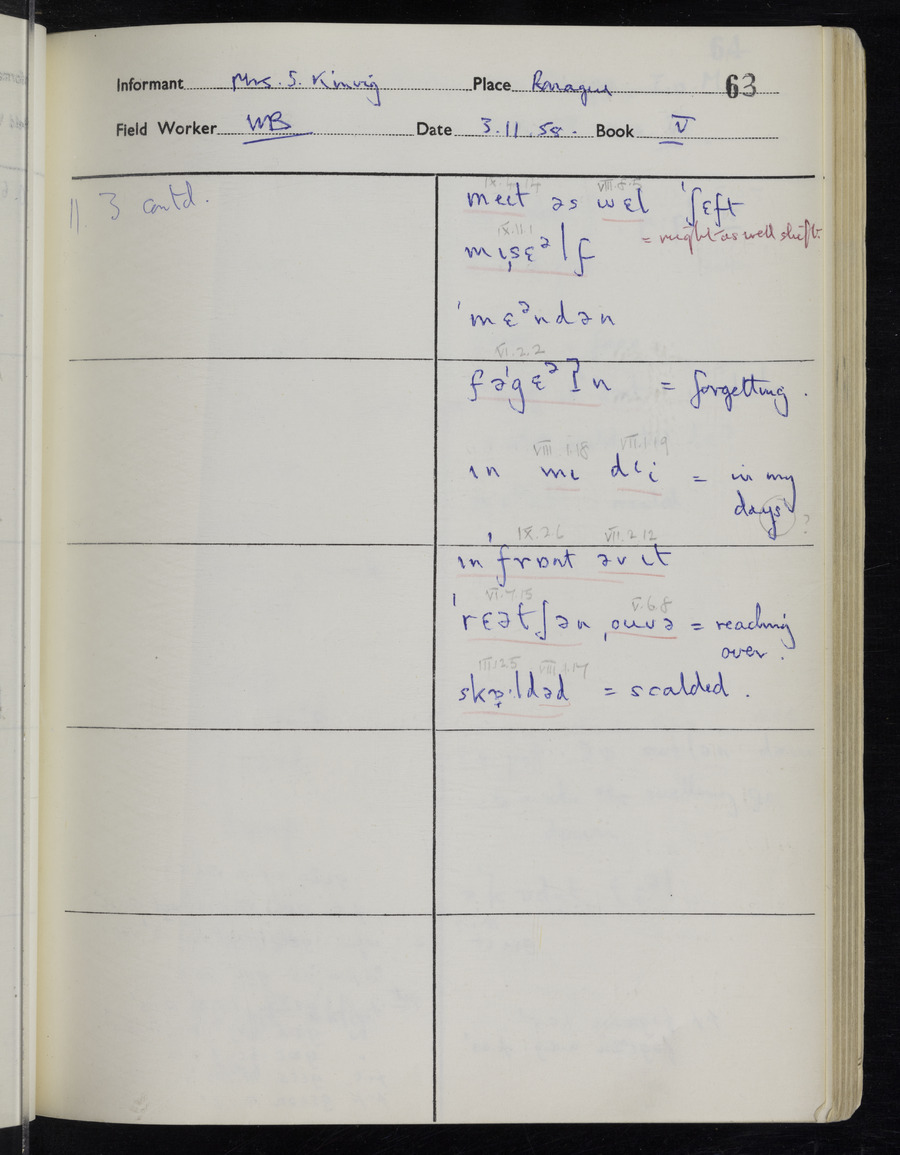 Informant Mrs S. Kinvig Place Ronague 63
Field Worker WB Date 3.11.58. Book V
11. 3 contd.
IX.4.14 VIII.8.5
meit əs wɛl ˈʃɛft
= might as well shift.
IX.11.1
mɩˌsɛᵊlf
ˈmɛᵊndən
VI.2.2
fəˈgɛᵊʔn = forgetting.
VIII.1.18 VII.1.19
ɩn mɩ dɛi = in my
days ?
IX.2.6 VII.2.12
ɩnˈfrɒnt əv ɩt
VI.7.15 V.6.8
ˈrɛətʃən ˌouvə = reaching
over.
III.12.5 VIII.1.17
skɒ̣ːldəd = scalded.